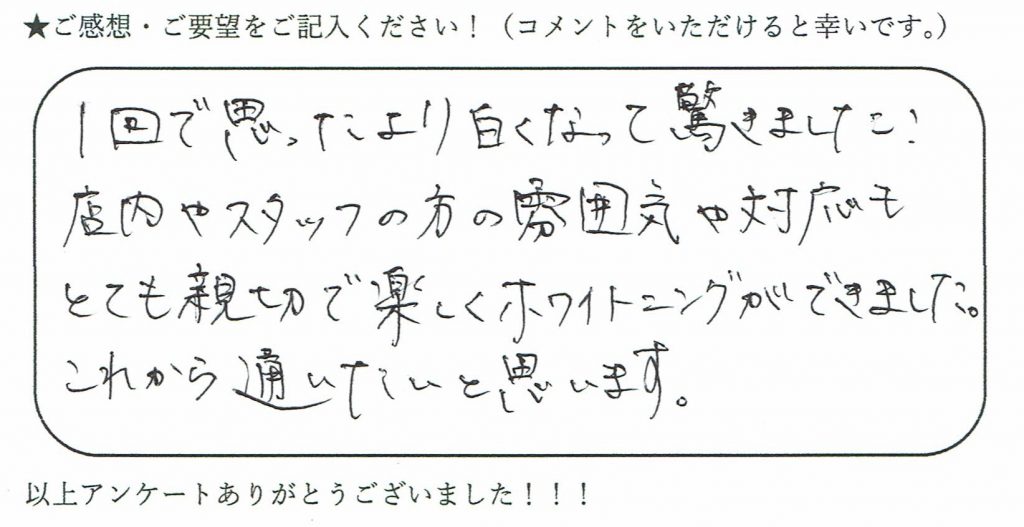 ★ご感想・ご要望をご記入ください！（コメントをいただけると幸いです。）
1回で思ったより白くなって驚きました！
店内やスタッフの方の雰囲気や対応も
とても親切で楽しくホワイトニングができました。
これから通いたいと思います。
以上アンケートありがとうございました！！！